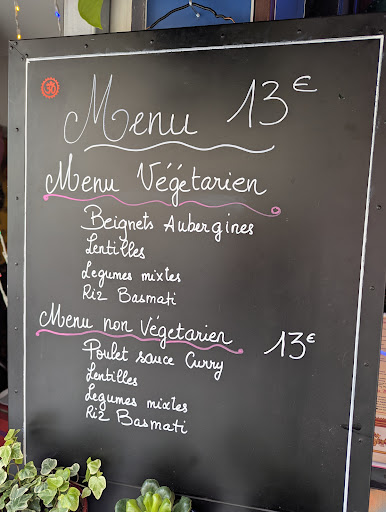 Menu 13€
Menu Végétarien
Beignets Aubergines
Lentilles
Legumes mixtes
Riz Basmati
Menu non Végetarien 13€
Poulet sauce Curry
Lentilles
Legumes mixtes
Riz Basmati